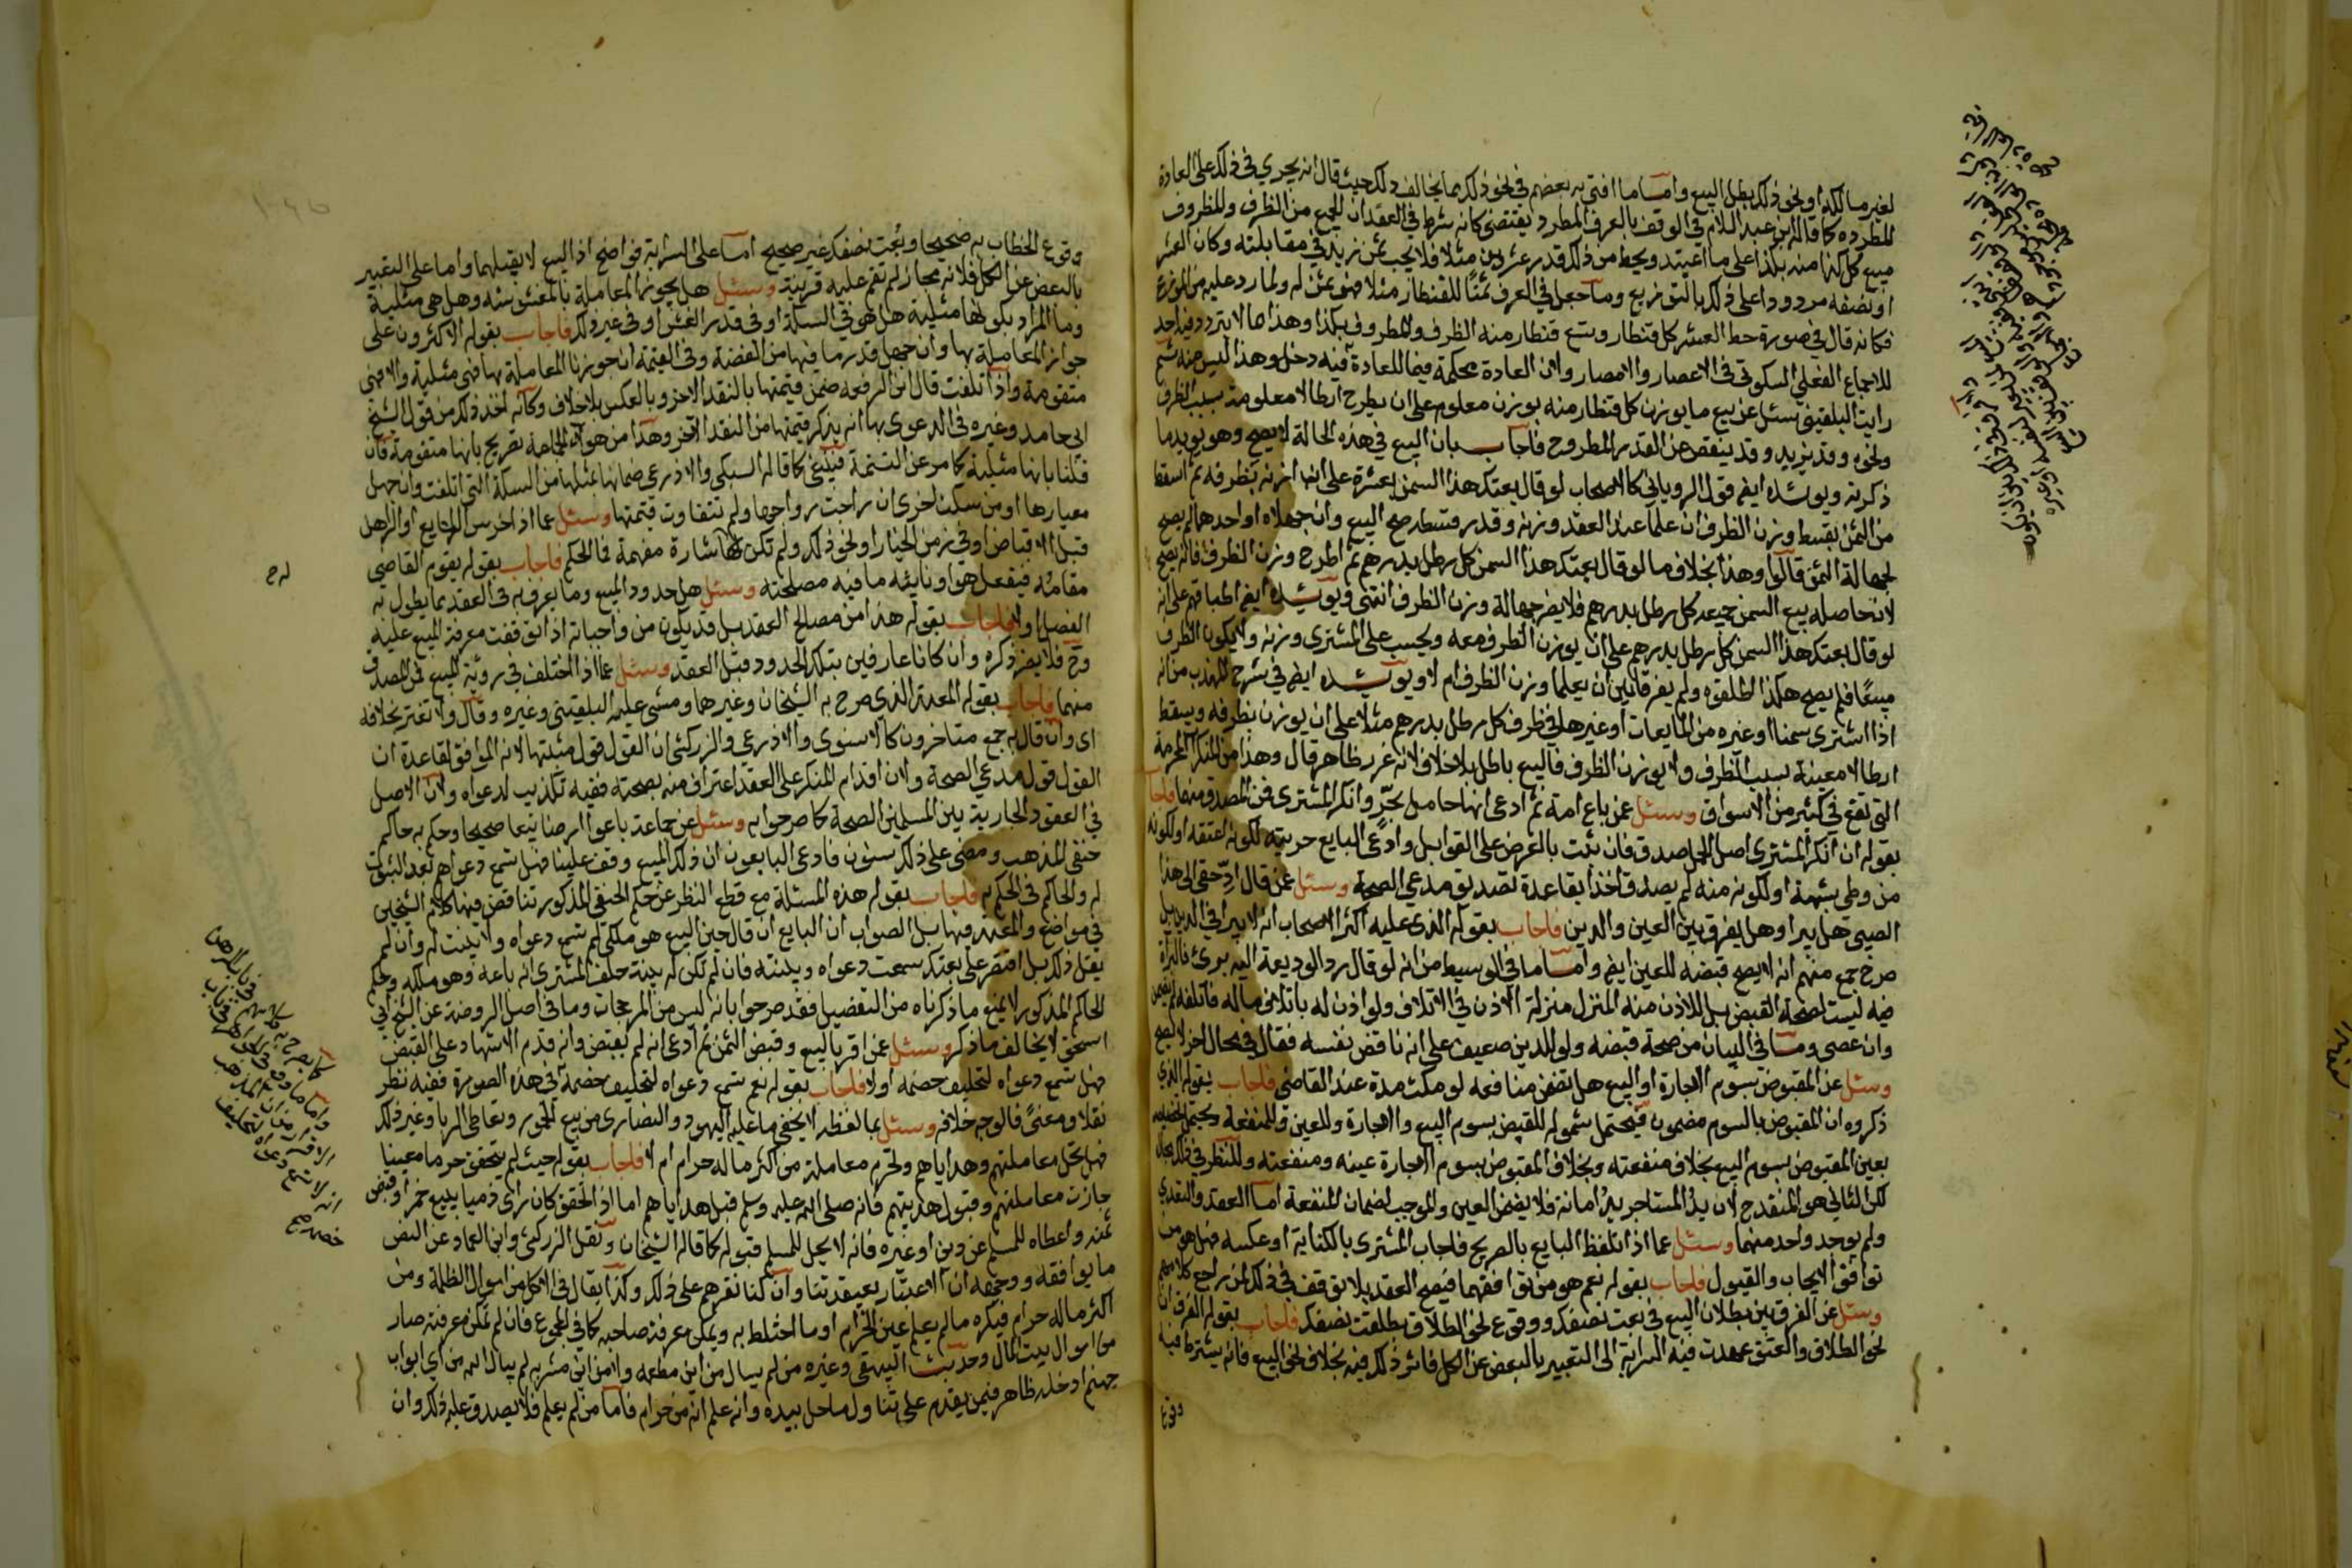 لغير مالكه او نحو ذلك بطل البيع واما ما افتى به بعضهم في نحو ذلك بما يخالف ذلك حيث قال انه يجري في ذلك على العادة
المطرده كما قاله ابن عبد السلام في الوقف بالعرف المطرد يقتضي كانه شرط في العقد ان للجميع من الظرف والمظروف
مبيع كل كذا منه بكذا على ما اعتيد ويحط من ذلك قدر عشرين مثلا فلا يجب ثمن يزيد في مقابلته وكان العشر
او نصفه مردودا على ذلك بالتوزيع وما جعل في العرف ثمنا للقنطار مثلا فهو ثمن له ولما رد عليه من الموزع
فكانه قال في صورة حط العشر كل قنطار وتسع قنطار منه الظرف والمظروف بكذا وهذا مما لا يتردد فيه احد
للاجماع الفعلي السكوتي في الاعصار والامصار ولان العادة محكمة فيما للعادة فيه دخل وهذا ليس منه ثم
رايت البلقيني سئل عن بيع ما يوزن كل قنطار منه بوزن معلوم على ان يطرح ارطالا معلومة بسبب الظرف
ونحوه وقد يزيد وقد ينقص عن القدر المطروح فاجاب بان البيع في هذه الحالة لا يصح وهو يويد ما
ذكرته ويويده ايضا قول الروياني كالاصحاب لو قال بعتك هذا السمن بعشرة على انها ازنه بظرفه ثم اسقط
من الثمن بقسط وزن الظرف ان علما عند العقد وزنه وقدر قسطه صح البيع وان جهلاه او احدهما لم يصح
لجهالة الثمن قالوا وهذا بخلاف ما لو قال بعتك هذا السمن كل رطل بدرهم ثم اطرح وزن الظرف فانه يصح
لان حاصله بيع السمن جميعه كل رطل بدرهم فلا يضر جهالة وزن الظرف انتهى ويويده ايضا اطباقهم على انه
لو قال بعتك هذا السمن كل رطل بدرهم على ان يوزن الظرف معه ويحسب على المشتري وزنه ولا يكون الظرف
مبيعا فلم يصح هكذا اطلقوه ولم يفرقا بين ان يعلما وزن الظرف ام لا ويويده ايضا في شرح المهذب من انه
اذا اشترى سمنا او غيره من المايعات او غيرها في ظرف كل رطل بدرهم مثلا على ان يوزن بظرفه ويسقط
ارطالا معينة بسبب الظرف ولا يوزن الظرف فالبيع باطل بلا خلاف لانه غرر ظاهر قال وهذا من المنكرات المحرمة
التي تقع في كثير من الاسواق وسئل عمن باع امة ثم ادعى انها حامل بحر وانكر المشتري فمن المصدق منهما فاجاب
بقوله ان انكر المشتري اصل الحمل صدق فان ثبت بالعرض على القوابل وادعى البايع حريته لكونه اعتقه او لكونه
من وطى بشبهة او لكونه منه لم يصدق اخذا بقاعدة تصديق مدعي الصحة وسئل عمن قال ادّ حقي الى هذا
الصبي هل يبرا وهل يفرق بين العين والدين فاجاب بقوله الذي عليه اكثر الاصحاب انه لا يبرا في الدين بل
صرح جمع منهم انه لا يصح قبضه للعين ايضا واما ما في الوسيط من انه لو قال رد الوديعة اليه برئ فالبراة
فيه ليست لصحة القبض بل للاذن منه المنزل منزلة الاذن في الاتلاف ولو اذن له باتلاف ماله فاتلفه لم يضمن
وان عصى وما في البيان من صحة قبضه ولو للدين ضعيف على انه ناقض نفسه فقال في محال اخر لا يصح
وسئل عن المقبوض بسوم الاجارة او البيع هل تضمن منافعه لو مكث مدة عند القاضي فاجاب بقوله الذي
ذكروه ان المقبوض بالسوم مضمون فيحتمل شموله للقبض بسوم البيع والاجارة وللعين وللمنفعة ويحتمل تخصيصه
بعين المقبوض بسوم البيع بخلاف منفعته وبخلاف المقبوض بسوم الاجارة عينه ومنفعته وللنظر في ذلك مجال
لكن الثاني هو المنقدح لان يد المستاجر يد امانة فلا يضمن العين والموجب لضمان المنفعة اما العقد والتعدي
ولم يوجد واحد منهما وسئل عما اذا تلفظ البايع بالصريح فاجاب المشتري بالكناية او عكسه فهل هو من
توافق الايجاب والقبول فاجاب بقوله نعم هو من توافقهما فيصح العقد بلا توقف في ذلك لمن راجع كلامهم
وسئل عن الفرق بين بطلان البيع في بعت نصفك ووقوع نحو الطلاق بطلقت نصفك فاجاب بقوله الفرق ان
نحو الطلاق والعتق عهدت فيه السراية الى التعبير بالبعض عن الكل فاثر ذلك فيه بخلاف نحو البيع فانه يشترط فيه
وقوع
وقوع الخطاب به صحيحا وبعت نصفك غير صحيح اما على السراية فواضح اذ البيع لا يقبلها واما على التعبير
بالبعض عن الكل فلانه مجاز لم تقم عليه قرينة وسئل هل يجوز المعاملة بالمغشوشه وهل هي مثلية
وما المراد بكونها مثلية هل هو في السكة او في قدر الغش او في غير ذلك فاجاب بقوله الاكثرون على
جواز المعاملة بها وان جهل قدر ما فيها من الفضة وفي التتمة ان جوزنا المعاملة بها فهي مثلية والا فهي
متقومة واذا تلفت قال ابن الرفعه ضمن قيمتها بالنقد الاخر وبالعكس بلا خلاف وكانه اخذ ذلك من قول الشيخ
ابي حامد وغيره في الدعوى بها انه يذكر قيمتها من النقد الاخر وهذا من هولاء الجماعة تصريح بانها متقومة فان
قلنا بانها مثلية كما مر عن التتمة فينبغي كما قاله السبكي والاذرعي ضمانها بمثلها من السكة التي اتلفت وان جهل
معيارها او من سكت اخرى ان راجت رواجها ولم تتفاوت قيمتها وسئل عما اذا خرس البايع او الراهن
قبل الاقباض او في زمن الخيار او نحو ذلك ولم تكن لهما اشارة مفهمة فما الحكم فاجاب بقوله يقوم القاضي
مقامه فيفعل هو او نايبه ما فيه مصلحته وسئل هل حدود المبيع وما يعرف به في العقد بما يطول به
الفصل او لا فاجاب بقوله هذا من مصالح العقد بل قد يكون من واجباته اذا توقفت معرفة المبيع عليه
وح فلا يضر ذكره وان كانا عارفين بتلك الحدود قبل العقد وسئل عما اذا اختلف في روية المبيع فمن المصدق
له ح
منهما فاجاب بقوله المعتمد الذي صرح به الشيخان وغيرهما ومشى عليه البلقيني وغيره وقال ولا تغتر بخلافه
اى وان قال به جمع متاخرون كالاسنوى والاذرعي والزركشي ان القول قول مثبتها لانه الموافق لقاعدة ان
القول قول مدعي الصحة ولان اقدام المنكر على العقد اعتراف منه بصحته ففيه تكذيب لدعواه ولان الاصل
في العقود الجارية بين المسلمين الصحة كما صرحوا به وسئل عن جماعة باعوا ارضا بيعا صحيحا وحكم به حاكم
حنفى المذهب ومضى على ذلك سنون فادعى البايعون ان ذلك المبيع وقف علينا فهل تسمع دعواهم بعد الثبوت
له والحاكم في الحكم به فاجاب بقوله هذه المسئلة مع قطع النظر عن حكم الحنفي المذكور تناقض فيها كلام الشيخين
في مواضع والمعتمد فيها بل الصواب ان البايع ان قال حين البيع هو ملكي لم تسمع دعواه ولا بينت له وان لم
يقل ذلك بل اقتصر على بعتك سمعت دعواه وبينته فان لم تكن له بينة حلف المشتري انه باعه وهو ملكه وحكم
الحاكم المذكور لا يمنع ما ذكرناه من التفصيل فقد صرحوا بانه ليس من المرجحات وما في اصل الروضة عن الشيخ ابي
اسحق لا يخالف ما ذكر وسئل عمن اقر بالبيع وقبض الثمن ثم ادعى انه لم يقبض وانه قدم الاشهاد على القبض
فهل تسمع دعواه لتحليف خصمه او لا فاجاب بقوله نعم تسمع دعواه لتحليف خصمه في هذه الصورة ففيه نظر
نقلا ومعنى فالوجه خلافه وسئل بما لفظه لا يخفى ما عليه اليهود والنصارى من بيع الخمور وتعاطى الربا وغير ذلك
فهل تحل معاملتهم وهداياهم وتحرم معاملة من اكثر ماله حرام ام لا فاجاب بقوله حيث لم يتحقق حراما معينا
جازت معاملتهم وقبول هديتهم فانه صلى الله عليه وسلم قبل هداياهم اما اذا تحقق كان راى ذميا يبيع خمرا وقبض
ثمنه واعطاه للمسلم عن دين او غيره فانه لا يحل للمسلم قبوله كما قاله الشيخان ونقل الزركشي وابن العماد عن النص
ما يوافقه ووجهه ان الاعتبار بعقيدتنا وان كنا نقرهم على ذلك وكذا يقال في الاكل من اموال الظلمة ومن
اكثر ماله حرام فيكره ما لم يعلم عين الحرام او ما اختلط به ويمكن معرفة صاحبه كما في المجموع فان لم تمكن معرفته صار
من اموال بيت المال وحديث البيهقي وغيره من لم يبال من اين مطعمه ولا من اين مشربه لم يبال الله من اي ابواب
جهنم ادخله ظاهر فيمن يقدم على تناول ما حل بيده وانه علم انه من حرام فاما من لم يعلم فلا يصدق عليه ذلك وان